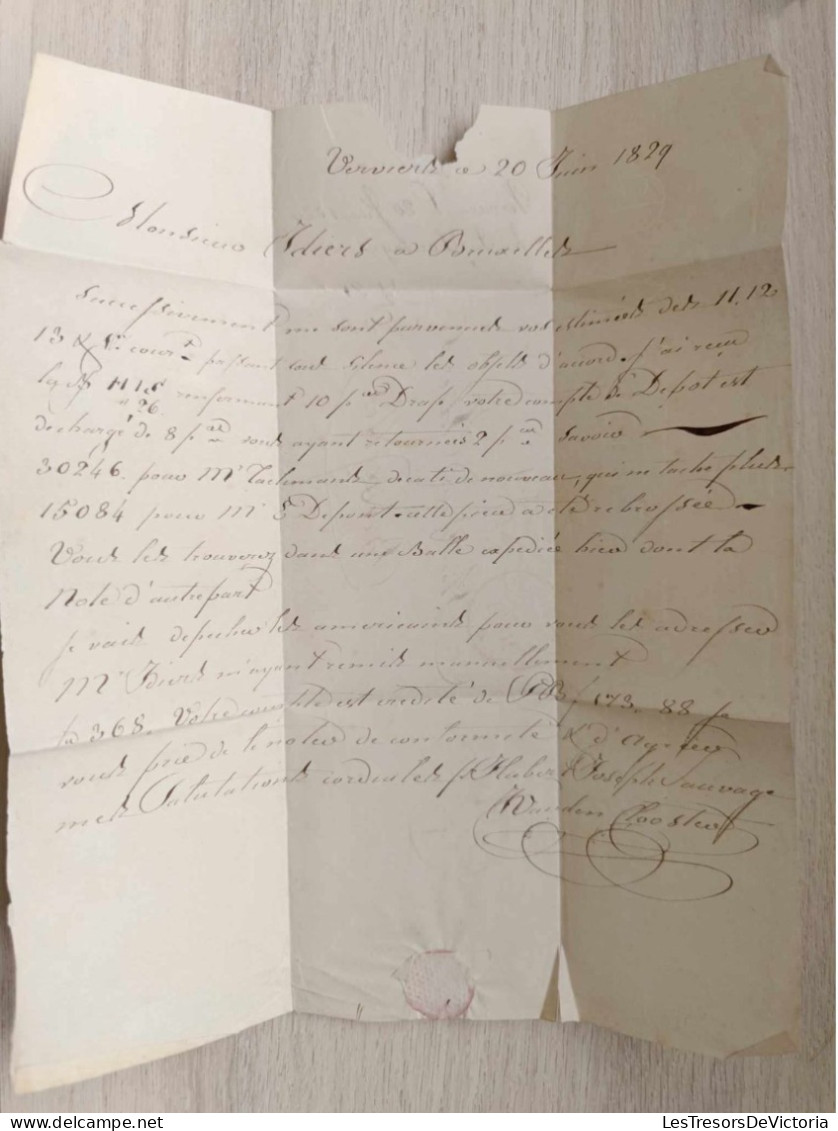 Verviers ce 20 Juin 1829
Monsieur Idiers a Bruxelles
Successivement me sont parvenues vos estimées des 11. 12
13 & Ct courrt passant sous silence les objets d'accord. j'ai reçu
la B HIS renfermant 10 pces Drap, votre compte de Depot est
26
dechargé de 8 pces vous ayant retournées 2 pces savoir
30246. pour Mr decati de nouveau, qui ne tache plus
15084 pour Mr S Depont. cette piece a été rebrossée
Vous les trouverez dans une Balle expediée hier dont la
Note d'autre part
je vais depecher les americains pour vous les adresser
Mr Idiers m'ayant remis manuellement
368. Votre compte est credité de 173. 88 je
vous prie de le noter de conformité & d'agréer
mes Salutations cordiales p. Hubert Joseph Sauvage
Vanden
LesTresorsDeVictoria